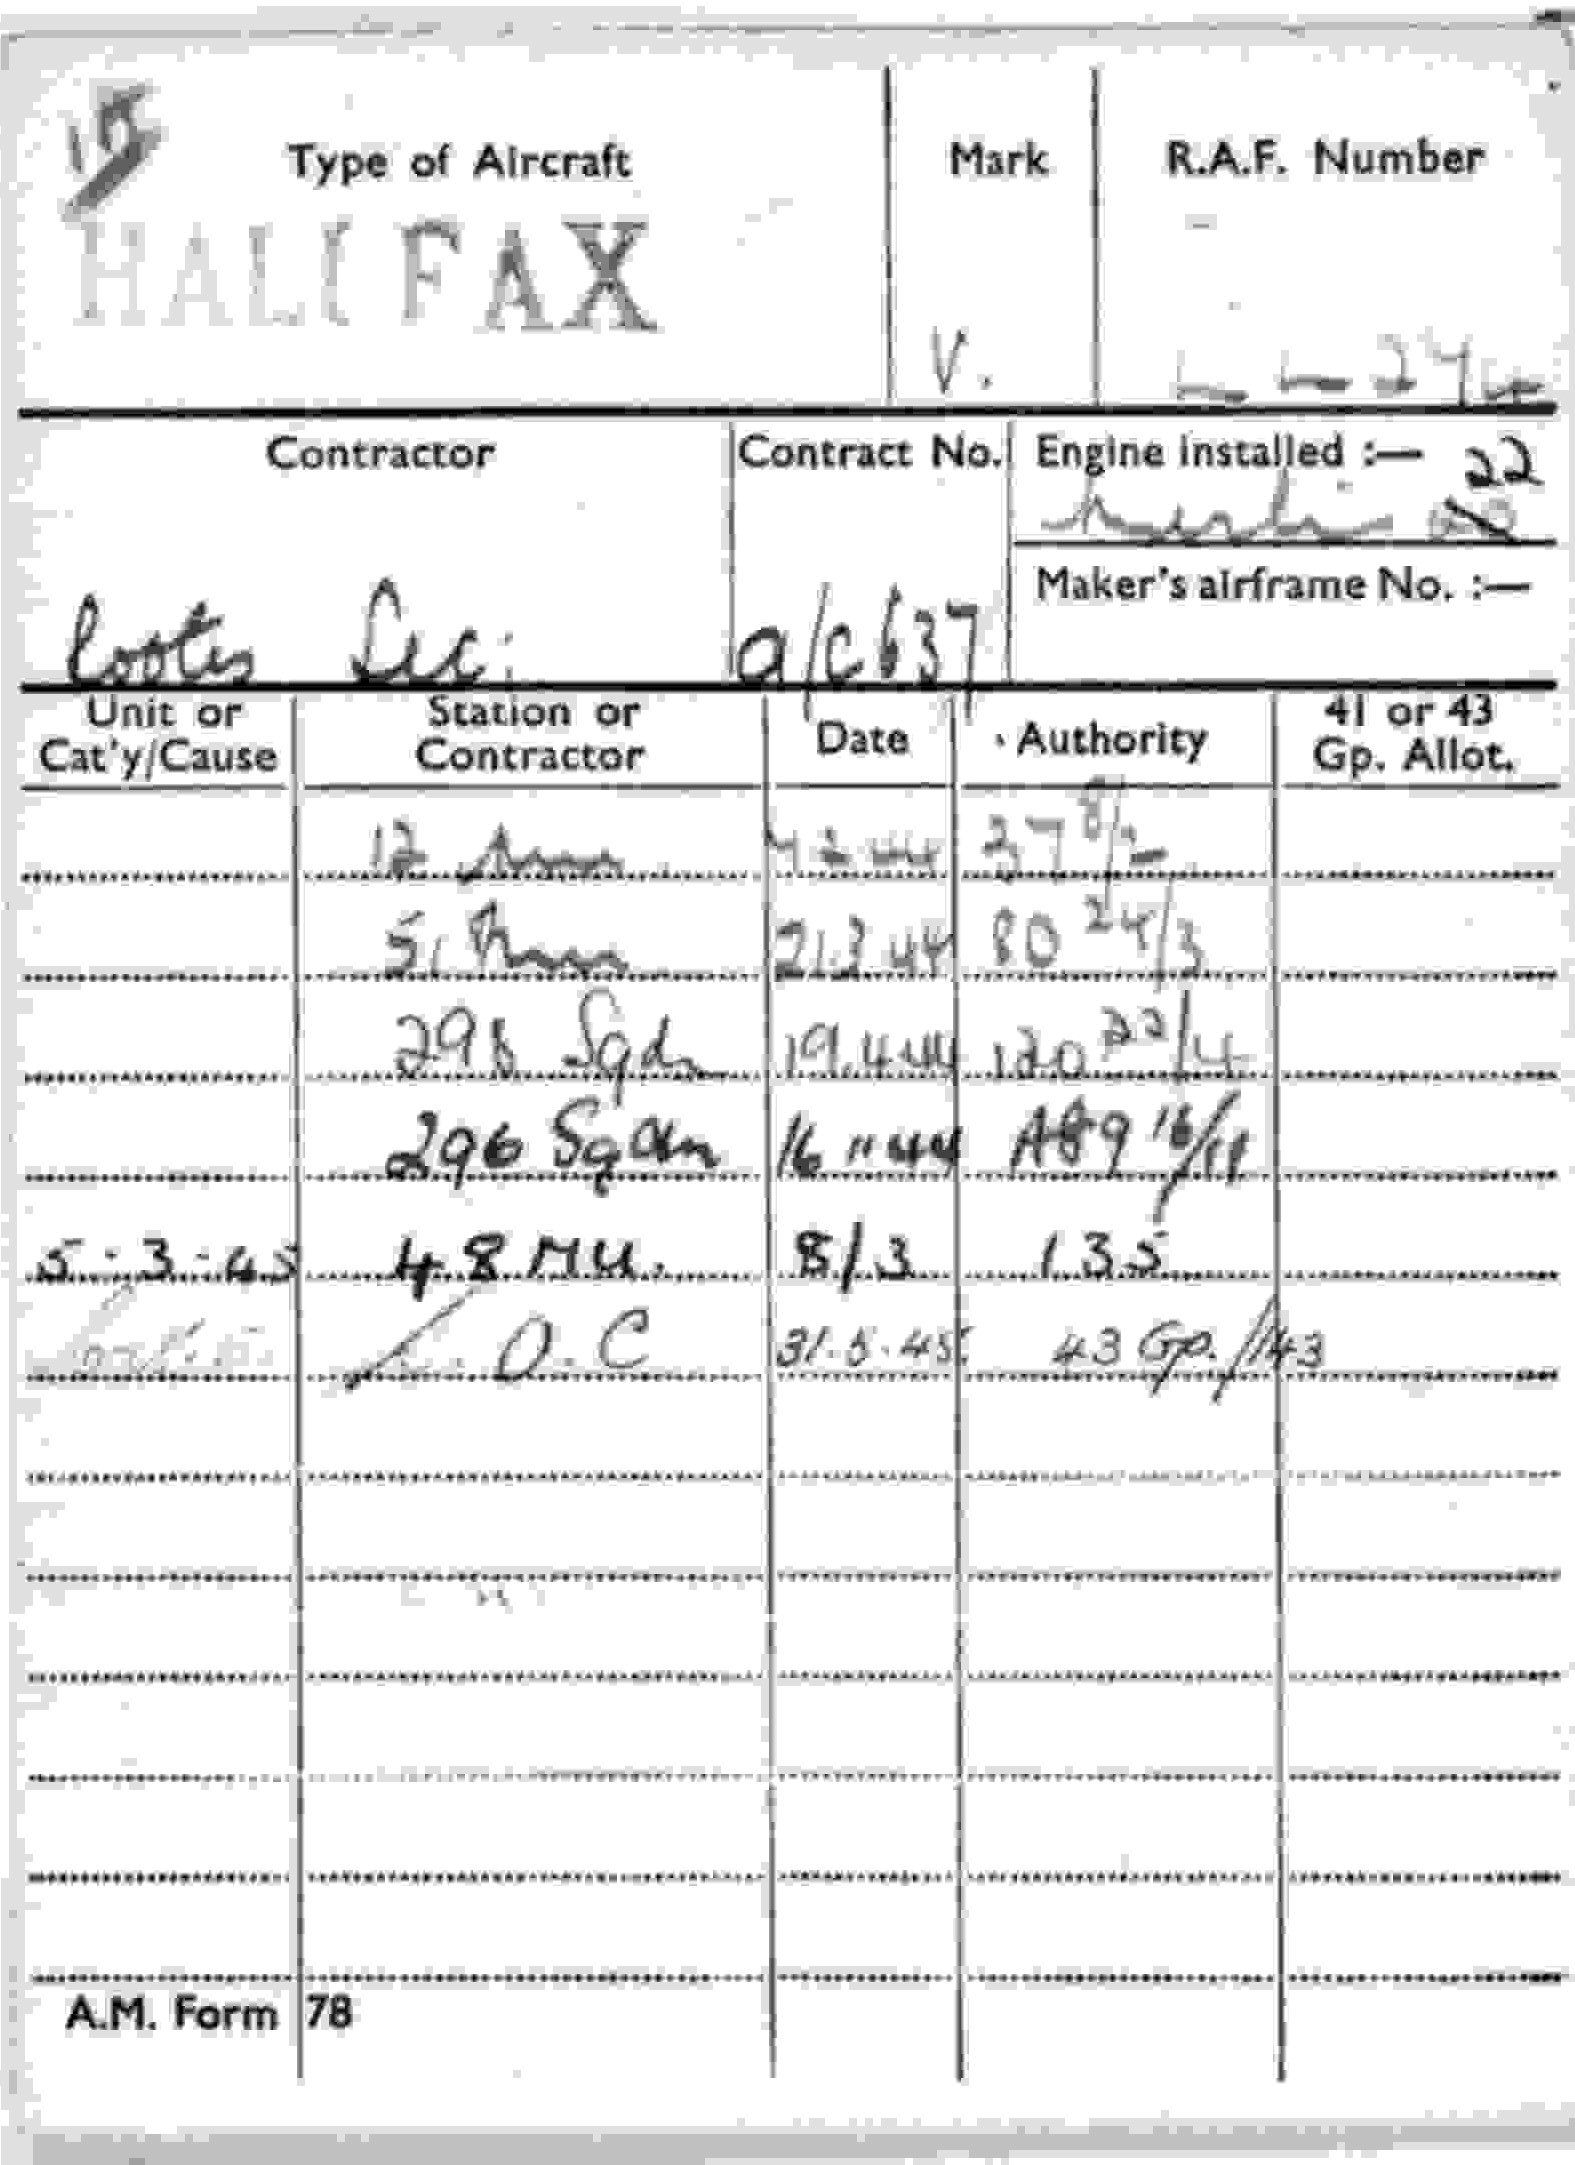 Type of Aircraft Mark R.A.F. Number
HALIFAX V. L L 274
Contractor Contract No. Engine installed :— 22
Maker's airframe No. :—
Rootes Sec: a/c 637
Unit or Cat'y/Cause Station or Contractor Date Authority 41 or 43 Gp. Allot.
12 37 8/2
5. 21.3.44 80 24/3
298 Sqdn 19.4.44 120 22/4
296 Sqdn 16 11 44 A89 18/11
5 - 3 - 45 48 MU. 8/3 135
O. C 31.5.45 43 Gp. /143
A.M. Form 78